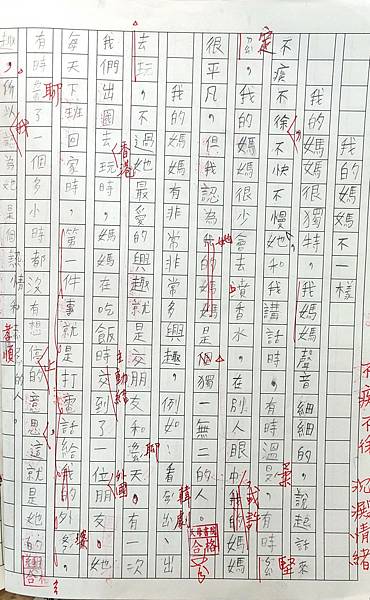 不疾不徐 沉澱情緒
我的媽媽不一樣
我的媽媽很獨特,我媽媽聲音細細的,說起話來
不疾不徐,不快不慢,她和我講話時,有時溫柔,有時堅
定。我的媽媽很少會去噴香水,在別人眼中或許我的媽
很平凡,但我認為我的媽媽是個獨一無二的人。
我的媽媽有非常非常多興趣,例如:看韓劇、出
去玩。不過她最愛的興趣就是交朋友和聊天。有一次
我們出國去香港玩,媽媽在吃飯時主動結交到了一位外國朋友,她
每天下班回家時,第一件事就是打電話給我的外婆,
有時聊了一個多小時都沒有想停止的意思,這就是她的
趣,所以我認為她是個熱情和孝順的人。
合格